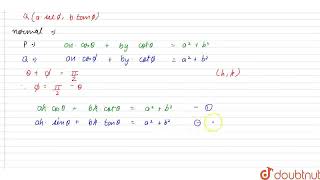 Q (a secϕ, b tanϕ)
normal →
P → ax cosθ + by cotθ = a² + b²
Q → ax cosϕ + by cotϕ = a² + b²
θ + ϕ = π/2 (h, k)
∴ ϕ = π/2 - θ
ah cosθ + bk cotθ = a² + b² - ①
ah sinθ + bk tanθ = a² + b²
doubtnut